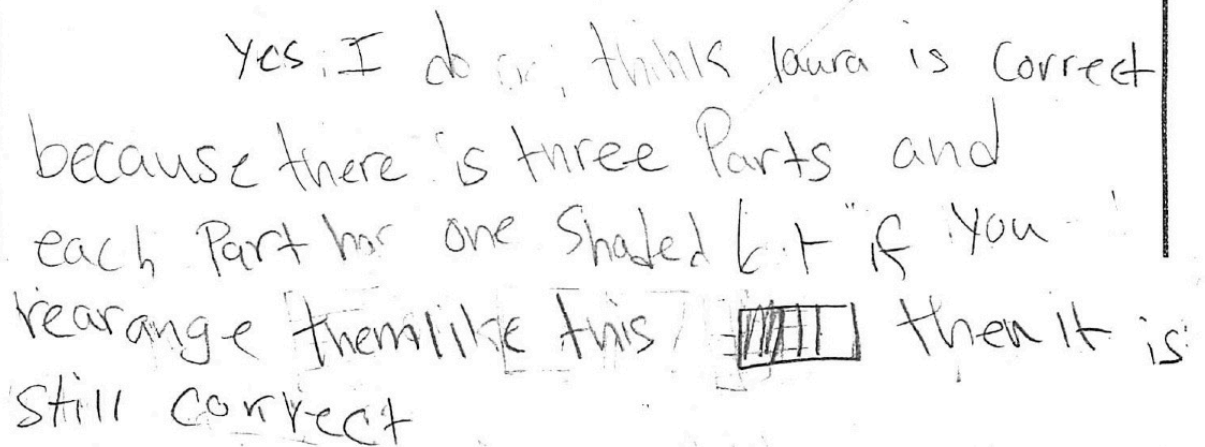 Yes, I do think laura is correct
because there is three Parts and
each Part has one Shaded bit if You
rearange them like this then it is
still correct